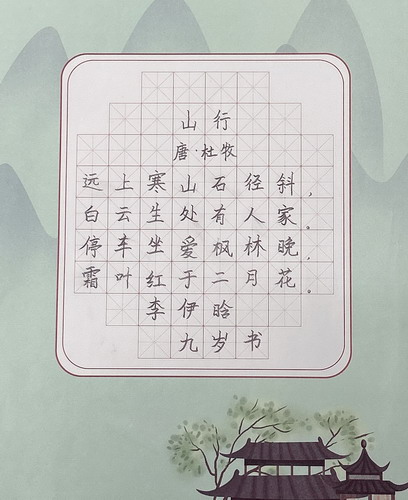 山行
唐·杜牧
远上寒山石径斜，
白云生处有人家。
停车坐爱枫林晚，
霜叶红于二月花。
李伊晗
九岁书